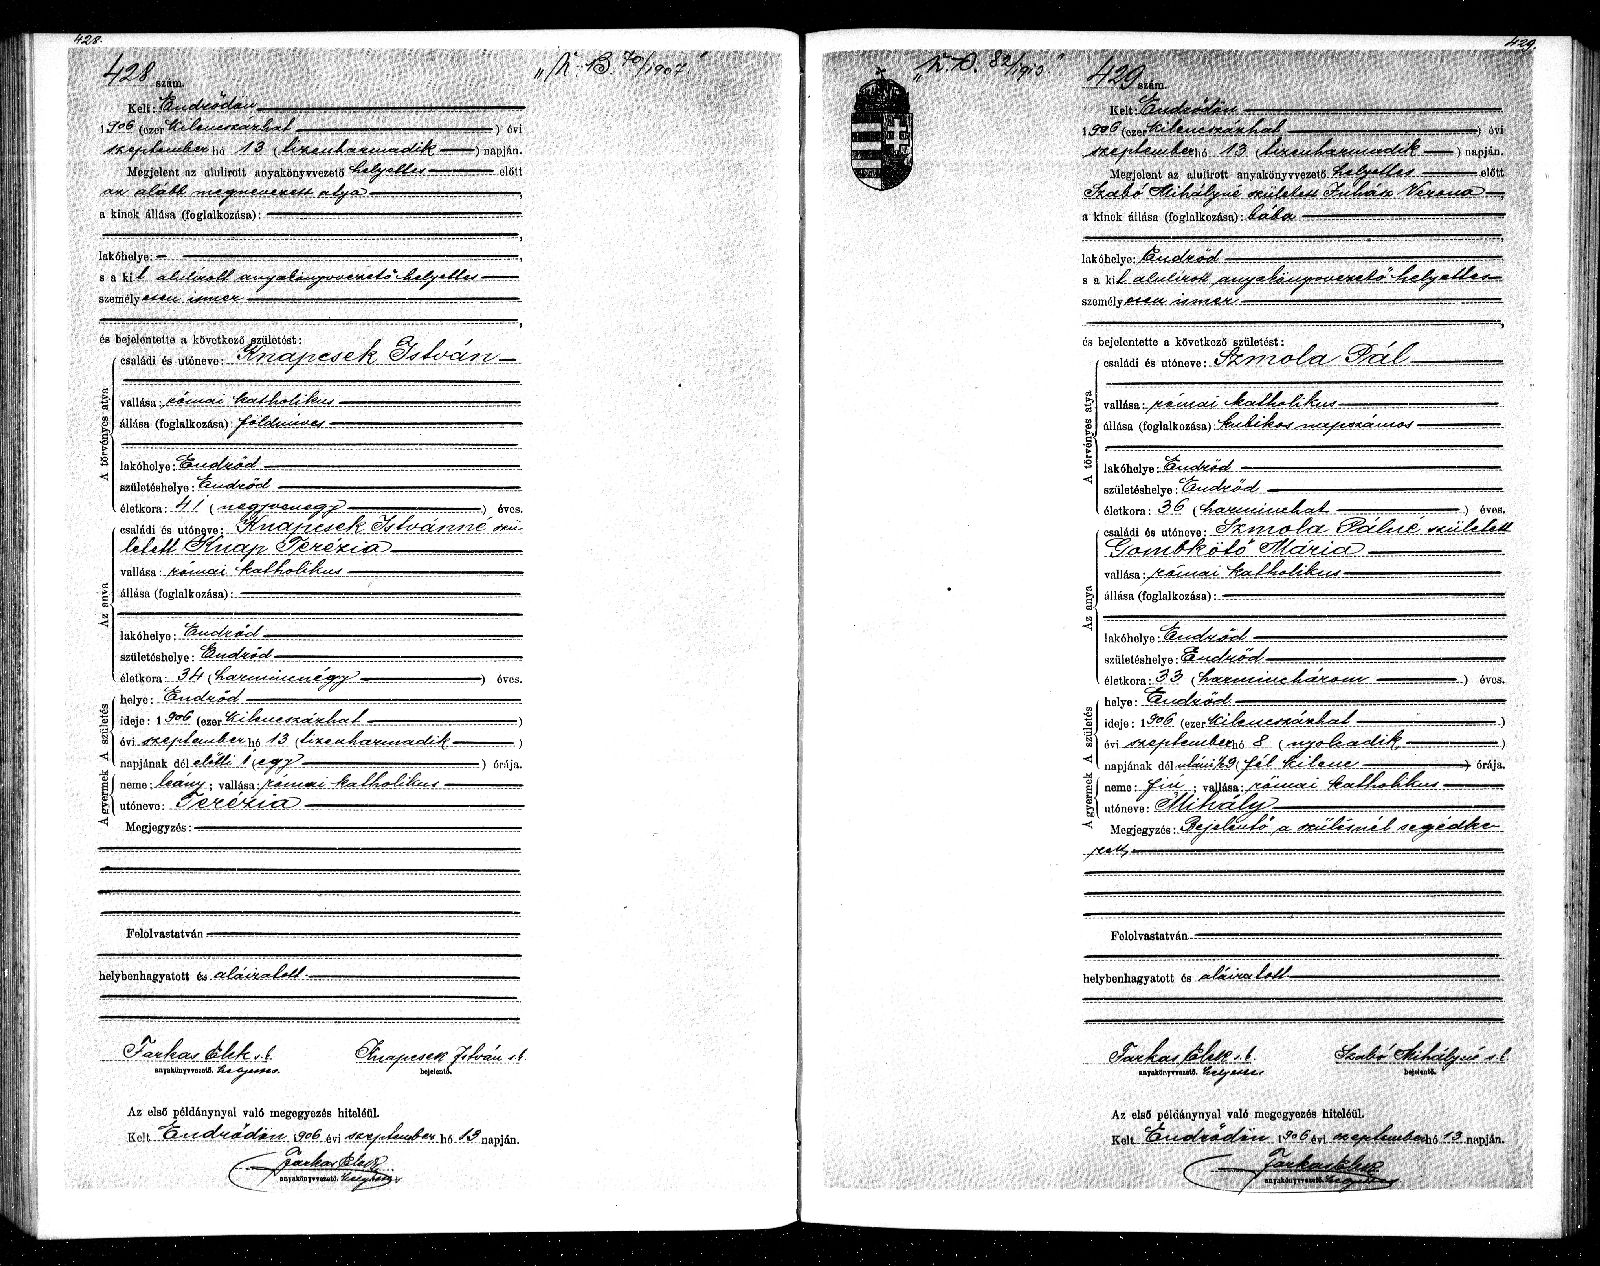 428.
428 szám.
Kelt: Endrődön
1906 (ezer kilencszázhat) évi
szeptember hó 13 (tizenharmadik) napján.
Megjelent az alulirott anyakönyvvezető helyettes előtt
az alább megnevezett atya,
a kinek állása (foglalkozása):
lakóhelye: –
s a kit alulírott anyakönyvvezető-helyettes
személyesen ismer
és bejelentette a következő születést:
A törvényes atya
családi és utóneve: Knapcsek István
vallása: római katholikus
állása (foglalkozása): földmíves
lakóhelye: Endrőd
születéshelye: Endrőd
életkora: 41 (negyvenegy) éves.
Az anya
családi és utóneve: Knapcsek Istvánné szü-
letett Knap Terézia
vallása: római katholikus
állása (foglalkozása):
lakóhelye: Endrőd
születéshelye: Endrőd
életkora: 34 (harmincnégy) éves.
A születés
helye: Endrőd
ideje: 1906 (ezer kilencszázhat)
évi szeptember hó 13 (tizenharmadik)
napjának dél előtti 1 (egy) órája.
A gyermek
neme: leány; vallása: római katholikus
utóneve: Terézia
Megjegyzés:
Felolvastatván
helybenhagyatott és aláiratott
Farkas Elek s. k. Knapcsek István s. k.
anyakönyvvezető. helyettes bejelentő.
Az első példánynyal való megegyezés hiteléül.
Kelt Endrődön 1906 évi szeptember hó 13 napján.
Farkas Elek
anyakönyvvezető. helyettes
429.
429 szám.
Kelt: Endrődön
1906 (ezer kilencszázhat) évi
szeptember hó 13 (tizenharmadik) napján.
Megjelent az alulirott anyakönyvvezető helyettes előtt
Szabó Mihályné született Juhász Verona,
a kinek állása (foglalkozása): bába
lakóhelye: Endrőd
s a kit alulírott anyakönyvvezető-helyettes
személyesen ismer
és bejelentette a következő születést:
A törvényes atya
családi és utóneve: Szmola Pál
vallása: római katholikus
állása (foglalkozása): kubikos napszámos
lakóhelye: Endrőd
születéshelye: Endrőd
életkora: 36 (harminchat) éves.
Az anya
családi és utóneve: Szmola Pálné született
Gombkötő Mária
vallása: római katholikus
állása (foglalkozása):
lakóhelye: Endrőd
születéshelye: Endrőd
életkora: 33 (harminchárom) éves.
A születés
helye: Endrőd
ideje: 1906 (ezer kilencszázhat)
évi szeptember hó 8 (nyolcadik)
napjának dél utáni ½9 (fél kilenc) órája.
A gyermek
neme: fiú; vallása: római katholikus
utóneve: Mihály
Megjegyzés: Bejelentő a szülésnél segédke-
zett,
Felolvastatván
helybenhagyatott és aláiratott
Farkas Elek s. k. Szabó Mihályné s. k.
anyakönyvvezető. helyettes bejelentő.
Az első példánynyal való megegyezés hiteléül.
Kelt Endrődön 1906 évi szeptember hó 13 napján.
Farkas Elek
anyakönyvvezető. helyettes